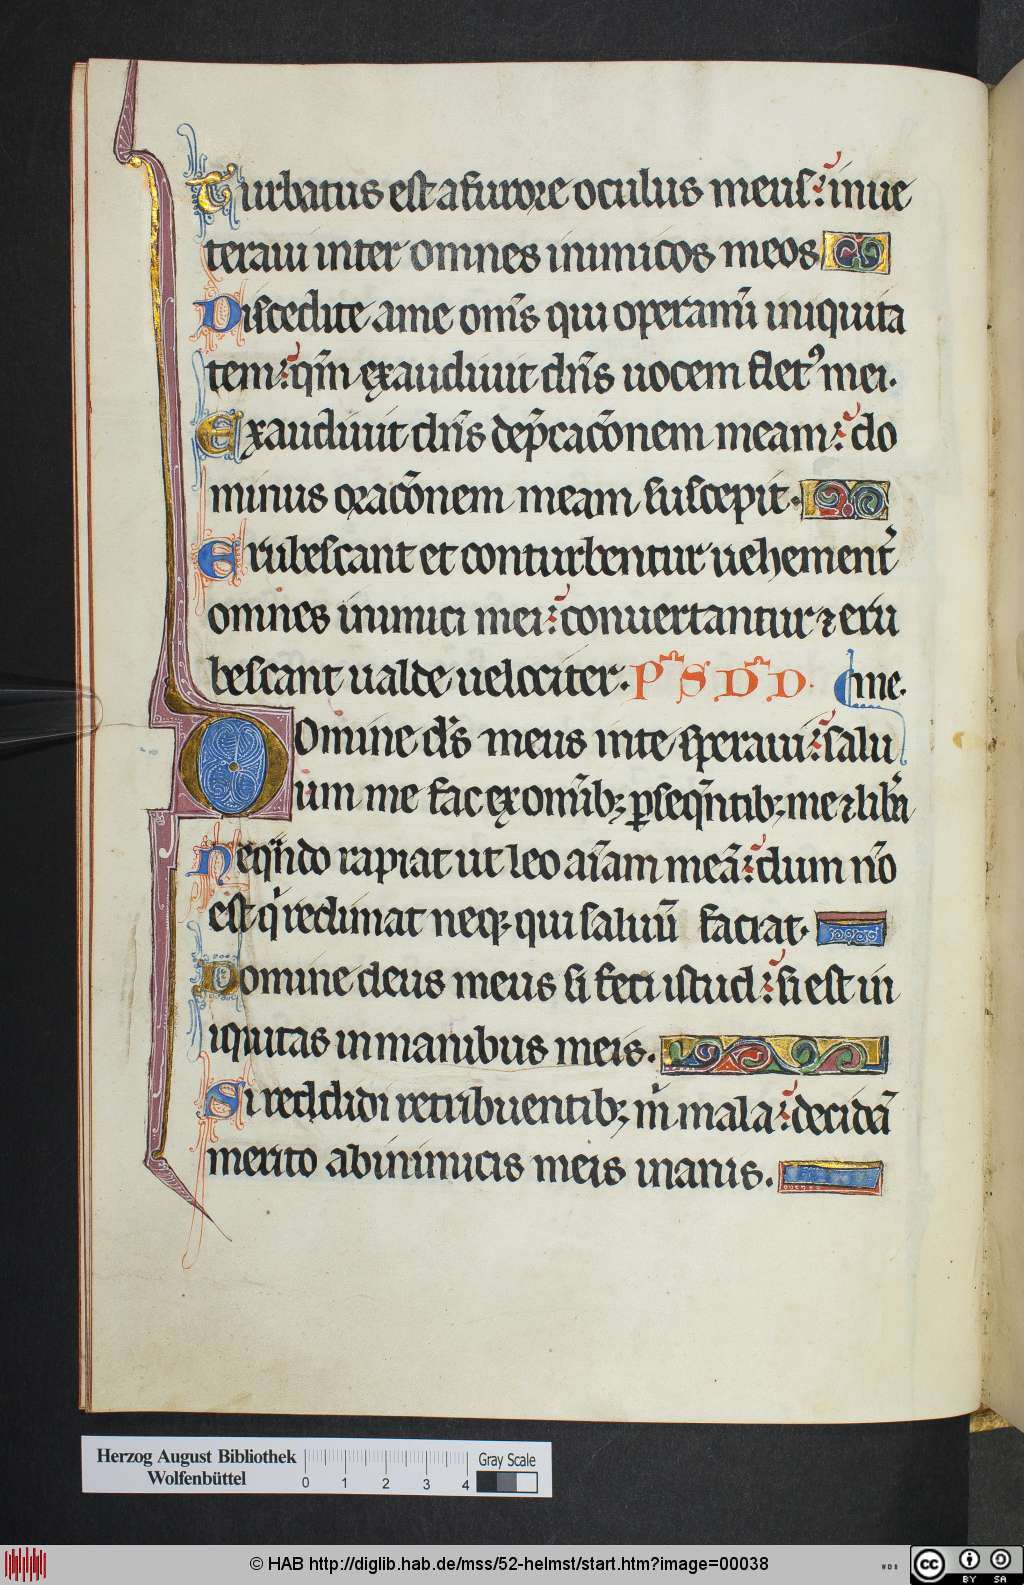 Turbatus est a furore oculus meus: inue
teraui inter omnes inimicos meos
Discedite a me om̄s qui operamī iniquita
tem: qm̄ exaudiuit dn̄s uocem fletꝰ mei.
Exaudiuit dn̄s dep̄cac̄onem meam: do
minus orac̄onem meam suscepit.
Erubescant et conturbentur uehement᷑
omnes inimici mei: conuertantur ⁊ eru
bescant ualde uelociter. P̄S D̄D. me.
Domine ds̄ meus in te speraui: salu
um me fac ex om̄ib; ꝑseq̄ntib; me ⁊ lib̄a
Neqn̄do rapiat ut leo aīam meā: dum nō
est qͥ redimat neq; qui saluū faciat.
Domine deus meus si feci istud: si est in
iquitas in manibus meis.
Si reddidi retribuentib; mͥ mala: decidā
merito ab inimicis meis inanis.
Herzog August Bibliothek
Wolfenbüttel
0 1 2 3 4
Gray Scale
© HAB http://diglib.hab.de/mss/52-helmst/start.htm?image=00038
cc BY SA